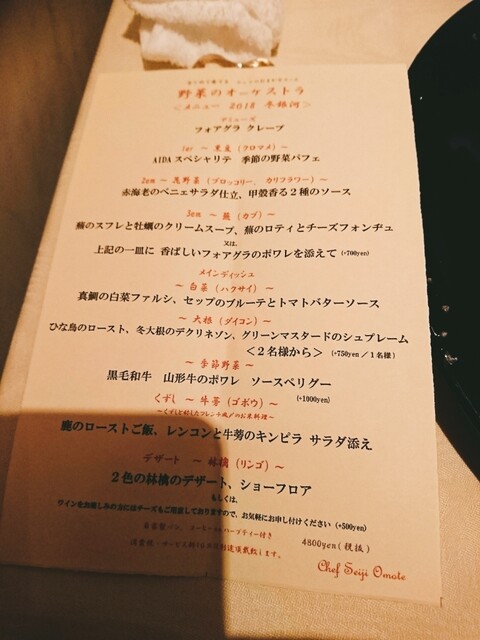 野菜のオーケストラ
＜メニュー 2018 冬銀河＞
アミューズ
フォアグラ クレープ
1er ～ 黒豆（クロマメ）～
AIDAスペシャリテ 季節の野菜パフェ
2em ～ 花野菜（ブロッコリー、カリフラワー）～
赤海老のベニエサラダ仕立、甲殻香る2種のソース
3em ～ 蕪（カブ）～
蕪のスフレと牡蠣のクリームスープ、蕪のロティとチーズフォンデュ
又は、
上記の一皿に 香ばしいフォアグラのポワレを添えて (+700yen)
メインディッシュ
～ 白菜（ハクサイ）～
真鯛の白菜ファルシ、セップのブルーテとトマトバターソース
～ 大根（ダイコン）～
ひな鳥のロースト、冬大根のデクリネゾン、グリーンマスタードのシュプレーム
＜2名様から＞ (+750yen／1名様)
～ 季節野菜 ～
黒毛和牛 山形牛のポワレ ソースペリグー
(+1000yen)
くずし ～ 牛蒡（ゴボウ）～
鹿のローストご飯、レンコンと牛蒡のキンピラ サラダ添え
デザート ～ 林檎（リンゴ）～
2色の林檎のデザート、ショーフロア
もしくは、
ワインをお楽しみの方にはチーズもご用意しておりますので、お気軽にお申し付けください (+500yen)
自家製パン、コーヒーorハーブティー付き
4800yen(税抜)
Chef Seiji Omote